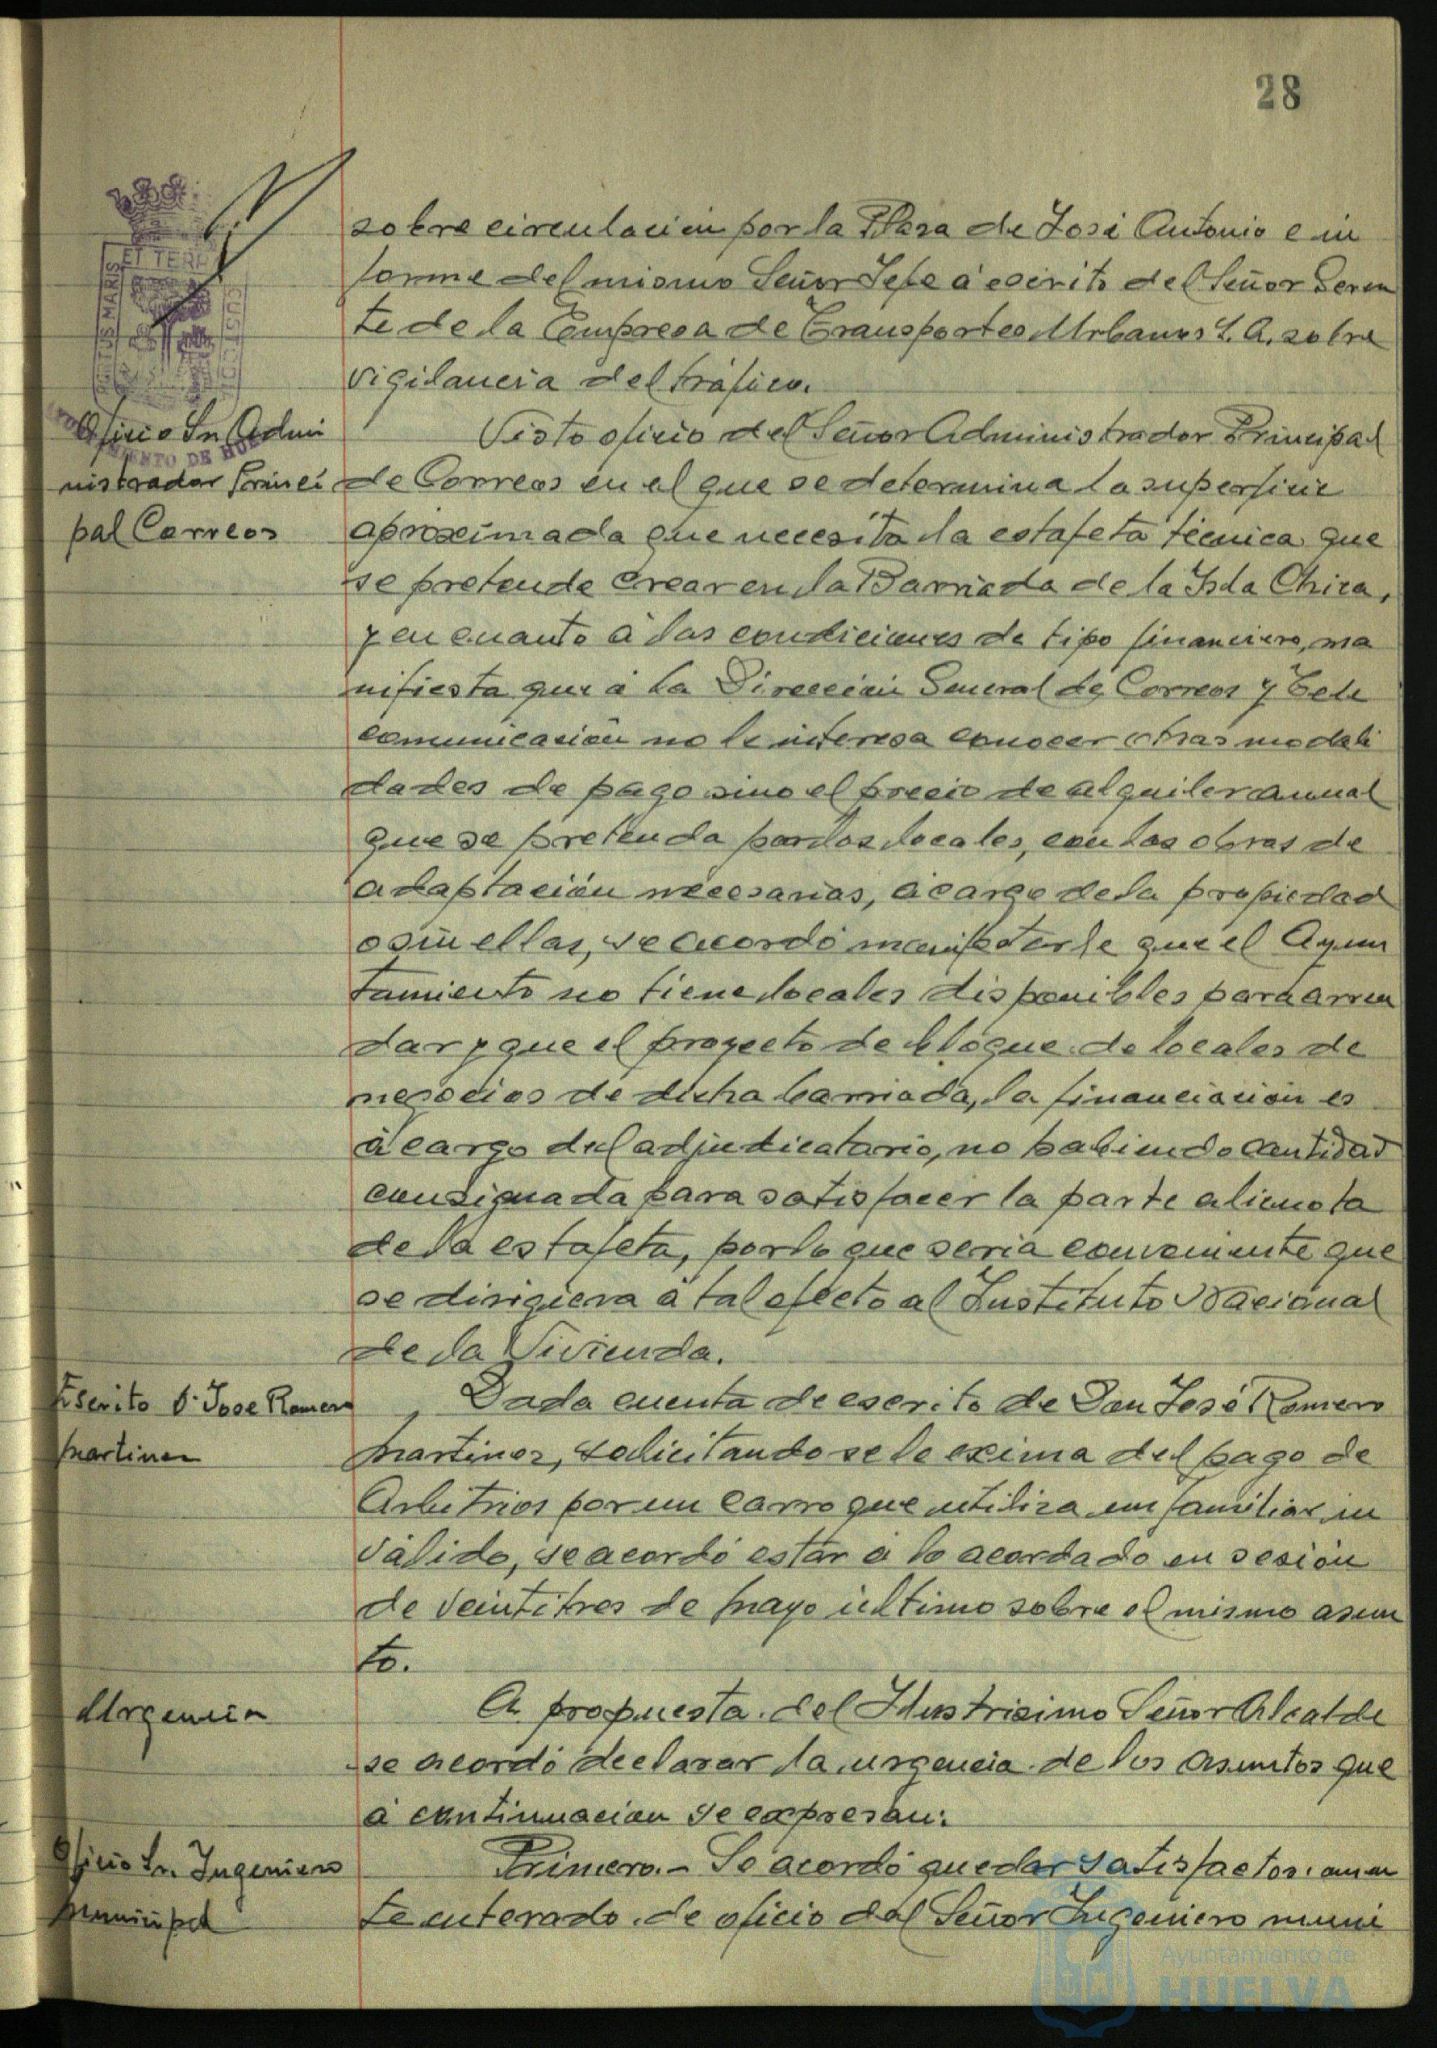 28
sobre circulación por la Plaza de José Antonio e in
forme del mismo Señor Jefe á escrito del Señor Geren
te de la Empresa de Transportes Urbanos S. A. sobre
vigilancia del tráfico.
Oficio Sr Admi
nistrador Princi
pal Correos
Visto oficio del Señor Administrador Principal
de Correos en el que se determina la superficie
aproximada que necesita la estafeta técnica que
se pretende crear en la Barriada de la Isla Chica,
y en cuanto á las condiciones de tipo financiero, ma
nifiesta que á la Dirección General de Correos y Tele
comunicación no le interesa conocer otras modali
dades de pago sino el precio de alquiler anual
que se pretenda por los locales, con las obras de
adaptación necesarias, á cargo de la propiedad
o sin ellas, se acordó manifestarle que el Ayun
tamiento no tiene locales disponibles para arren
dar y que el proyecto de bloque de locales de
negocios de dicha barriada, la financiación es
á cargo del adjudicatario, no habiendo cantidad
consignada para satisfacer la parte alicuota
de la estafeta, por lo que seria conveniente que
se dirigiera á tal efecto al Instituto Nacional
de la Vivienda.
Escrito D. Jose Romero
Martinez
Dada cuenta de escrito de Don José Romero
Martinez, solicitando se le exima del pago de
Arbitrios por un carro que utiliza un familiar in
válido, se acordó estar á lo acordado en sesión
de veintitres de mayo último sobre el mismo asun
to.
Urgencia
A propuesta del Ilustrisimo Señor Alcalde
se acordó declarar la urgencia de los asuntos que
á continuacion se expresan:
Oficio Sr. Ingeniero
Municipal
Primero.- Se acordó quedar satisfactoriamen
te enterado de oficio del Señor Ingeniero muni
ET TERR
PORTUS MARIS
CUSTODIA
AYUNTAMIENTO DE HUELVA
Ayuntamiento de
HUELVA